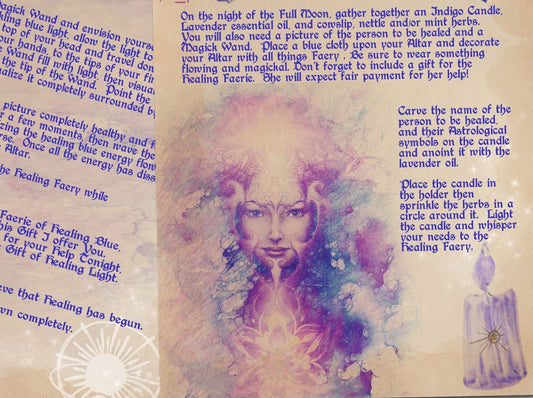 Magick Wand and envision yourse
kling blue light, allow the light to
top of your head and travel don
your hands, to the tips of your fin
Wand fill with light, then visual
the tip of the Wand. Point the
ualize it completely surrounded by
picture completely healthy and f
r a few moments, then wave the
zing the healing blue energy flow
rse. Once all the energy has diss
Altar.
he Healing Faery while
Faerie of Healing Blue,
his Gift I offer You.
for your Help Tonight,
Gift of Healing Light.
eve that Healing has begun.
wn completely.
On the night of the Full Moon, gather together an Indigo Candle,
Lavender essential oil, and cowslip, nettle and/or mint herbs.
You will also need a picture of the person to be healed and a
Magick Wand. Place a blue cloth upon your Altar and decorate
your Altar with all things Faery . Be sure to wear something
flowing and magickal. Don't forget to include a gift for the
Healing Faerie. She will expect fair payment for her help!
Carve the name of the
person to be healed,
and their Astrological
symbols on the candle
and anoint it with the
lavender oil.
Place the candle in
the holder then
sprinkle the herbs in a
circle around it. Light
the candle and whisper
your needs to the
Healing Faery.